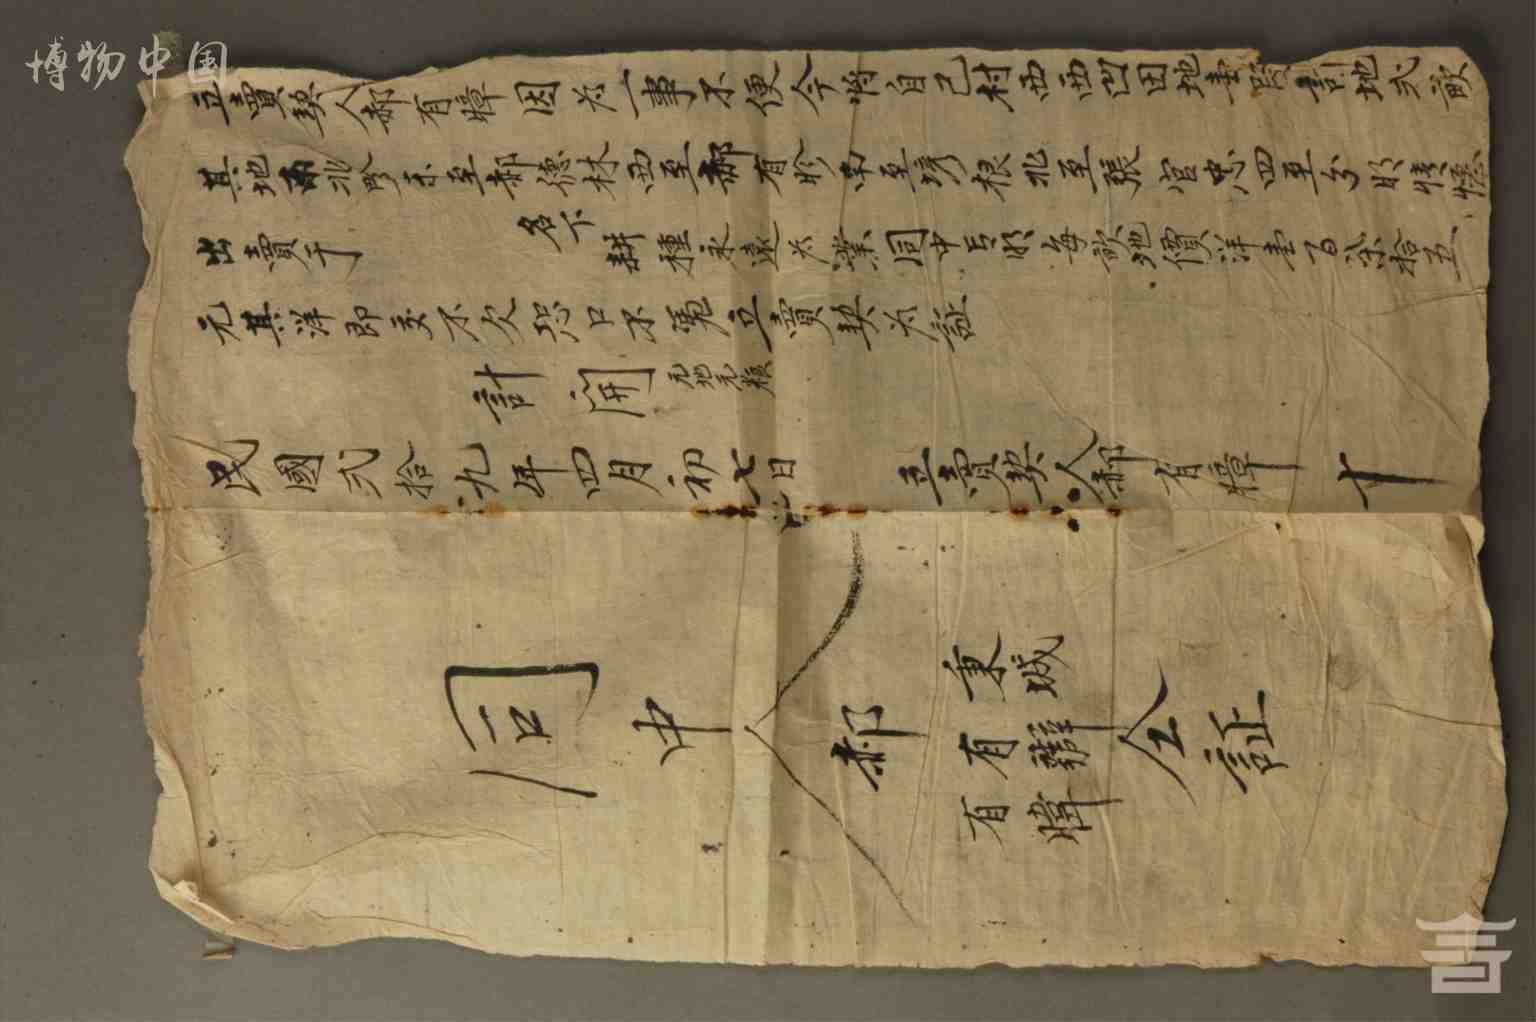 博物中国
立賣契人郝有暲因为一事不便今將自己村西西凹田地壹段計地弍畝
其地南北畛东至郝德林西至郝有於南至塄根北至張官忠四至分明情愿
出賣于 名下耕種永遠为業同中言明每畝地價洋壹百柒拾五
元其洋即交不欠恐口不凭立賣契为証
計開 元地元粮
民國弍拾九年四月初七日 立賣契人郝有暲 十
同中人郝 秉城 有 有暐 仝証